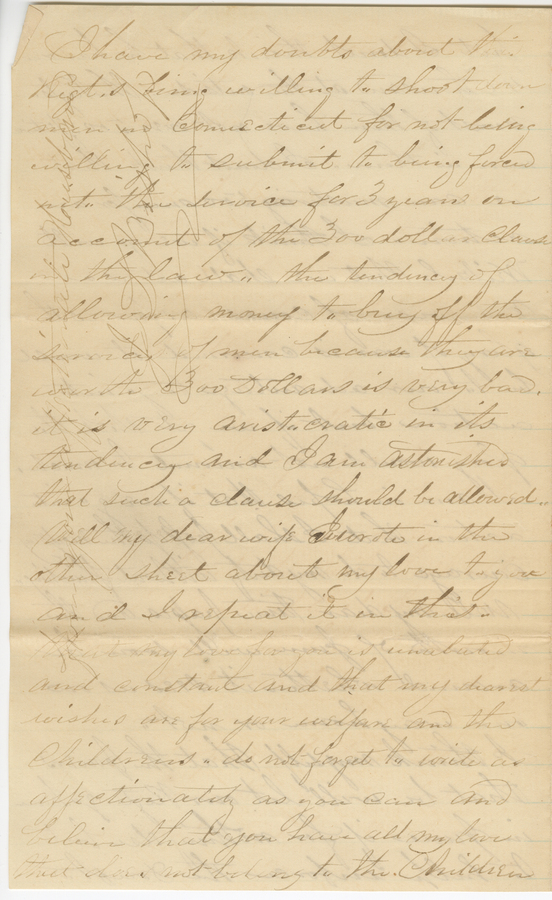 I have my doubts about the
Regt.s being willing to shoot down
men in Connecticut for not being
willing to submit to being forced
into the service for 3 years on
account of the 300 dollar clause
in the law, the tendency of
allowing money to buy off the
services of men because they are
worth 300 Dollars is very bad.
it is very aristocratic in its
tendency and I am astonished
that such a clause should be allowed..
Well my dear wife I wrote in the
other sheet about my love to you
and I repeat it in this.
that my love for you is unabated
and constant and that my dearest
wishes are for your welfare and the
Childrens. do not forget to write as
affectionately as you can and
believe that you have all my love
that does not belong to the Children